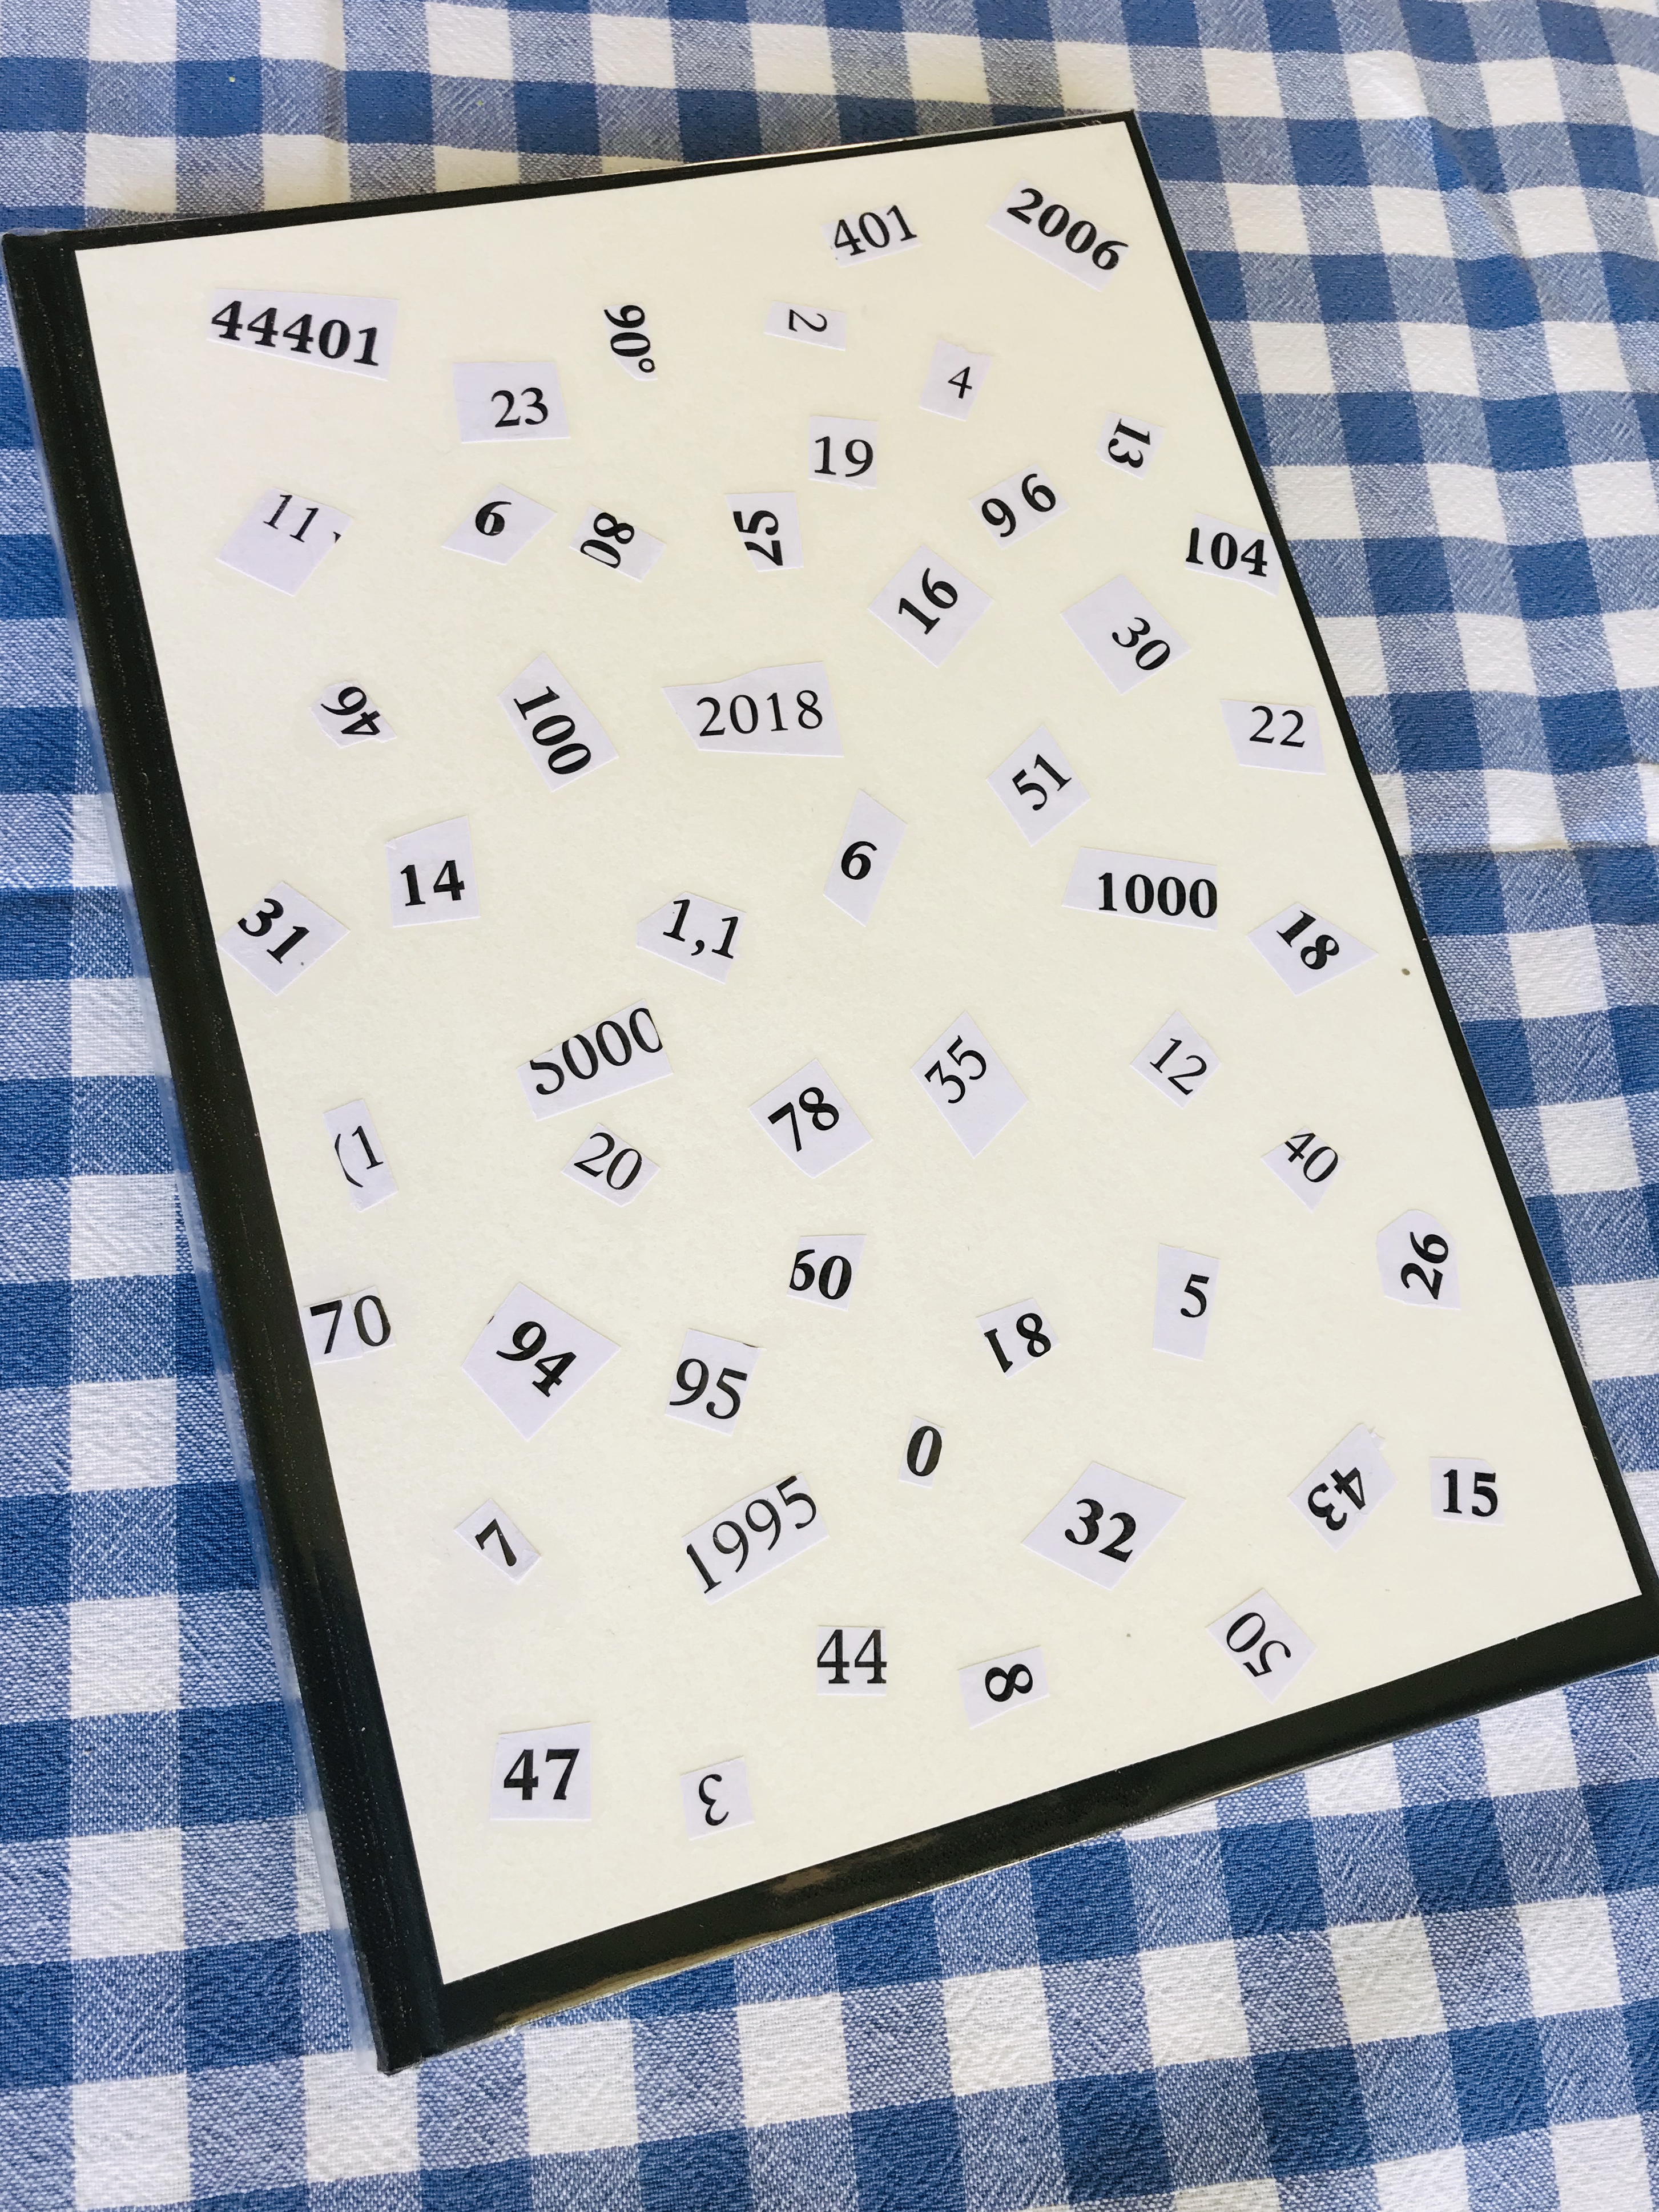 401
2006
44401
90°
2
23
4
19
13
11
6
80
57
96
104
16
30
46
100
2018
22
51
14
6
1000
31
1,1
18
5000
35
12
78
(1
20
40
60
26
70
94
95
81
5
0
7
1995
32
43
15
44
8
50
47
3